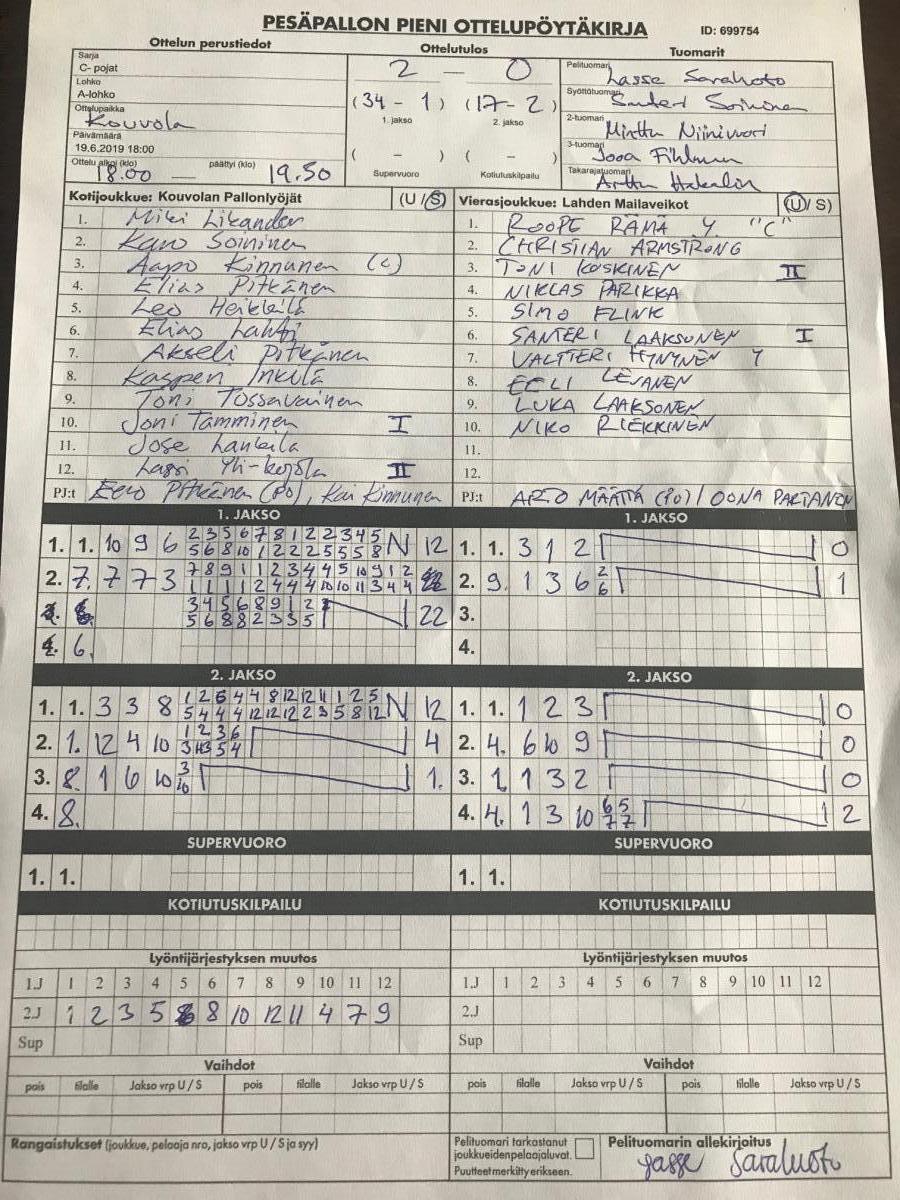 PESÄPALLON PIENI OTTELUPÖYTÄKIRJA
ID: 699754
Ottelun perustiedot
Sarja
C- pojat
Lohko
A-lohko
Ottelupaikka
Kouvola
Päivämäärä
19.6.2019 18:00
Ottelu alkoi (klo) päättyi (klo)
18.00 — 19.50
Ottelutulos
2 — 0
(34 - 1) (17 - 2)
1. jakso 2. jakso
( - ) ( - )
Supervuoro Kotiutuskilpailu
Tuomarit
Pelituomari
Lasse Saraluoto
Syöttötuomari
Santeri Soininen
2-tuomari
Minttu Niinivuori
3-tuomari
Jooa
Takarajatuomari
Arttu Hakalin
Kotijoukkue: Kouvolan Pallonlyöjät (U / S)
1. Miki Likander
2. Karo Soininen
3. Aapo Kinnunen (C)
4. Elias Pitkänen
5. Leo Heikkilä
6. Elias Lahti
7. Akseli Pitkänen
8. Kasperi Inkilä
9. Toni Tossavainen
10. Joni Tamminen I
11. Jose Lankila
12. Lassi Yli-kojola II
PJ:t Eero Pitkänen (PO), Kai Kinnunen
Vierasjoukkue: Lahden Mailaveikot (U / S)
1. ROOPE RÄMÄ Y "C"
2. CHRISTIAN ARMSTRONG
3. TONI KOSKINEN II
4. NIKLAS PARIKKA
5. SIMO FLINK
6. SANTERI LAAKSONEN I
7. VALTTERI HYNYNEN Y
8. EELI LESANEN
9. LUKA LAAKSONEN
10. NIKO RIEKKINEN
11.
12.
PJ:t ARTO MÄÄTTÄ (PO) / OONA PARTANEN
1. JAKSO
2 3 5 6 7 8 1 2 2 3 4 5
1. 1. 10 9 6 5 6 8 10 1 2 2 2 5 5 5 8 N 12
7 8 9 1 1 2 3 4 4 5 10 9 1 2
2. 7. 7 7 3 1 1 1 1 2 4 4 4 10 10 11 3 4 4
3 4 5 6 8 9 1 2
5 6 8 8 2 3 3 5 22
4. 6.
1. JAKSO
1. 1. 3 1 2 0
2. 9. 1 3 6 2 6 1
3.
4.
2. JAKSO
1 2 6 4 4 8 12 12 11 1 2 5
1. 1. 3 3 8 5 4 4 4 12 12 12 2 3 5 8 12 N 12
1 2 3 6
2. 1. 12 4 10 3 3 5 4 4
3. 8. 1 6 10 3 10 1.
4. 8.
2. JAKSO
1. 1. 1 2 3 0
2. 4. 6 10 9 0
3. 1. 1 3 2 0
6 5
4. 4. 1 3 10 7 7 2
SUPERVUORO
1. 1.
SUPERVUORO
1. 1.
KOTIUTUSKILPAILU
KOTIUTUSKILPAILU
Lyöntijärjestyksen muutos
1.J 1 2 3 4 5 6 7 8 9 10 11 12
2.J 1 2 3 5 6 8 10 12 11 4 7 9
Sup
Lyöntijärjestyksen muutos
1.J 1 2 3 4 5 6 7 8 9 10 11 12
2.J
Sup
Vaihdot
pois tilalle Jakso vrp U / S pois tilalle Jakso vrp U / S
Vaihdot
pois tilalle Jakso vrp U / S pois tilalle Jakso vrp U / S
Rangaistukset (joukkue, pelaaja nro, jakso vrp U / S ja syy)
Pelituomari tarkastanut
joukkueidenpelaajaluvat.
Puutteet merkitty erikseen.
Pelituomarin allekirjoitus
Lasse Saraluoto